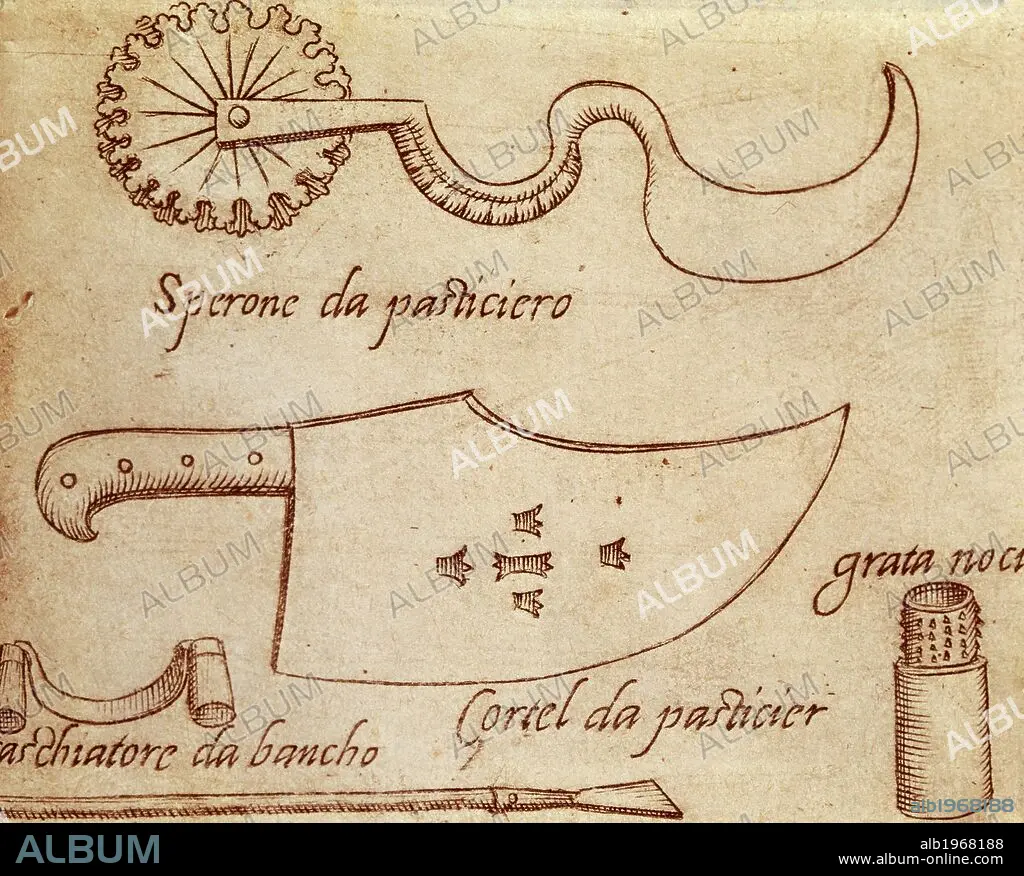 Sperone da pasticiero
grata noci
Cortel da pasticier
raschiatore da bancho
ALBUM
alb1968188
alb1968188
www.album-online.com